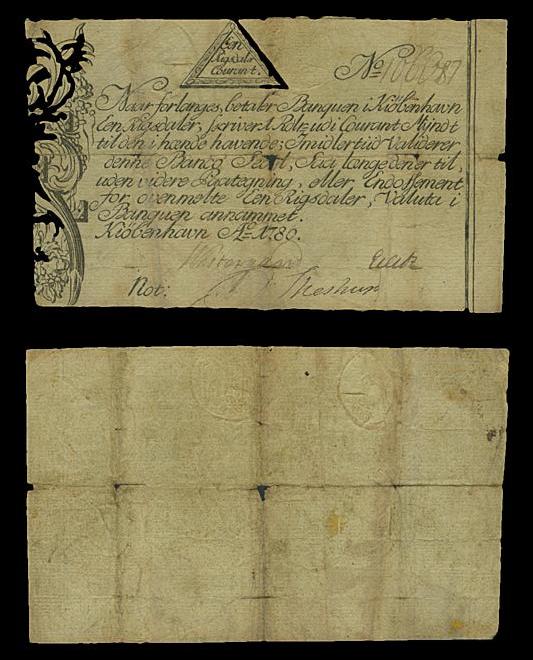 Een
Rigsdaler
Courant.
No
Naar forlanges, betaler Banquen i Kiöbenhavn
Een Rigsdaler, skriver 1 Rdlr. udi Courant Myndt
til den i hænde havende; Imidlertid Validerer
denne Banco Sedel, saa længe den er til,
uden videre Paategning, eller Endossement
for ovenmelte Een Rigsdaler, Valuta i
Banquen annammet.
Kiöbenhavn Ao 1780.
Not: